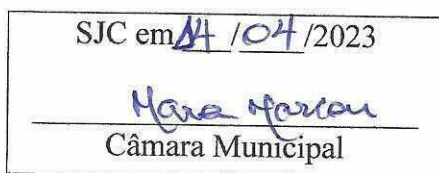 SJC em 14 /04 /2023
Mara Marcon
Câmara Municipal